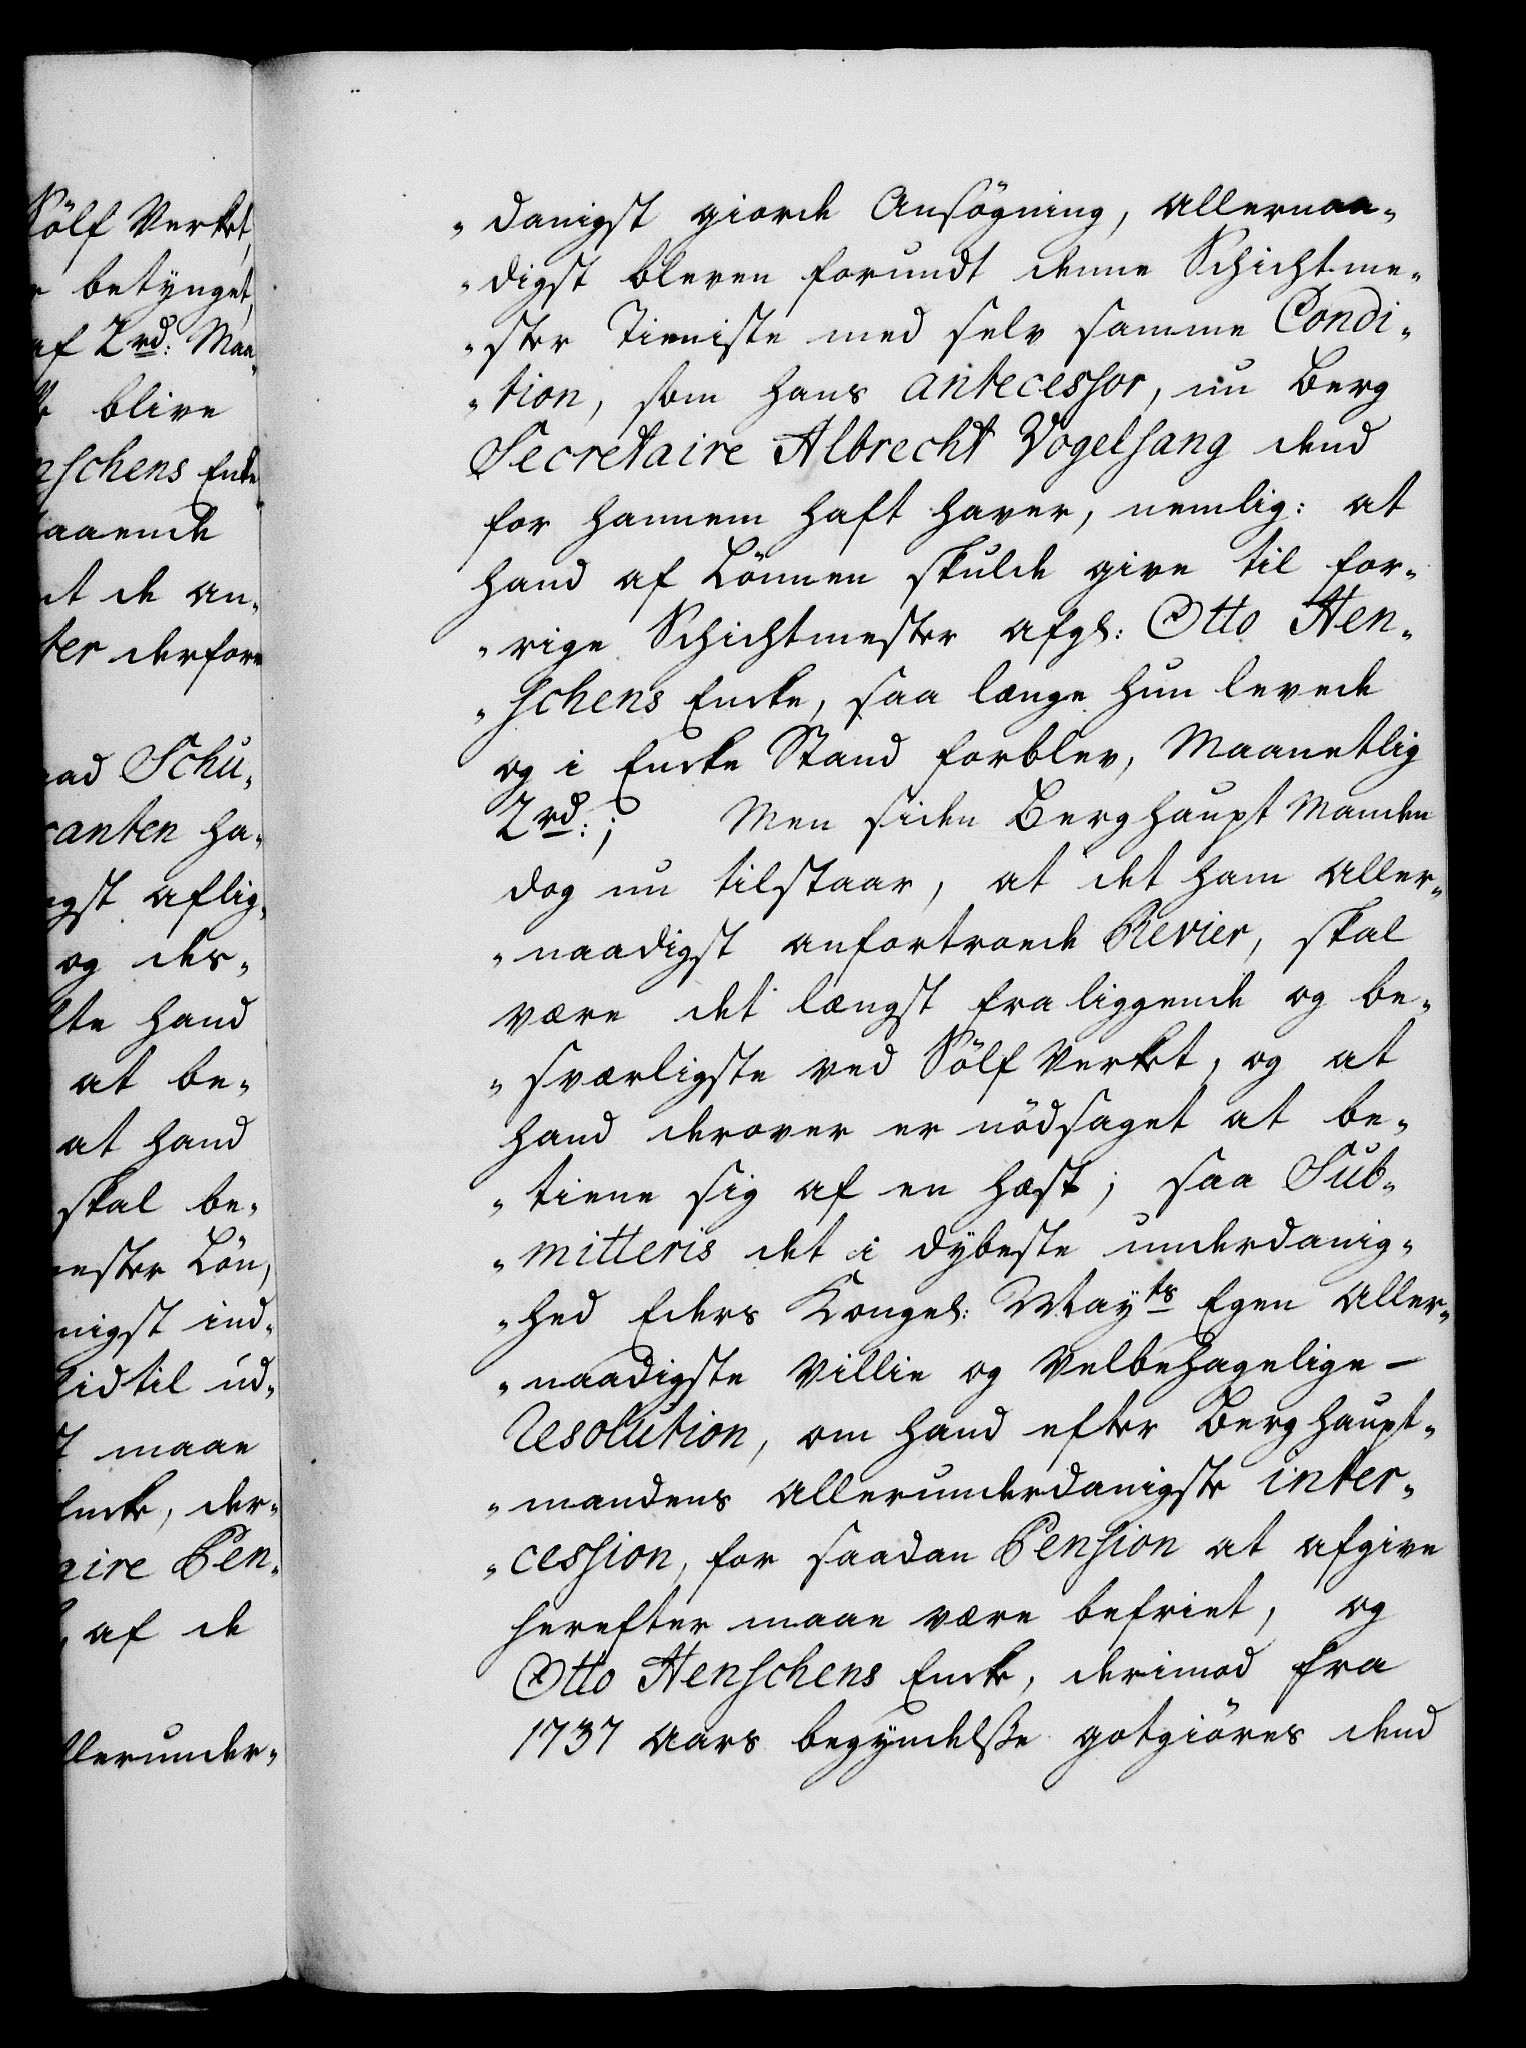 Sölf Verket,
betynget,
af 2 rd: Maa„
blive
nschens Encke
aaende
at de an„
ter derfore
aad Schu„
canten ha„
igst aflig„
og des„
lte hand
at be„
at hand
skal be„
mester Lön,
nigst ind„
tidtil ud„
maae
Encke, der„
aire Pen„
af de
llerunder„
„danigst giorde Ansögning, Allernaa„
„digst bleven forundt denne Schichtme„
„ster Tieniste med selv samme Condi„
„tion, som hans antecessor, nu Berg
Secretaire Albrecht Vogelsang dend
for hannem haft haver, nemlig: at
hand af Lönnen skulde give til for„
„rige Schichtmester afgl: Otto Hen„
„schens Encke, saa længe hun levede
og i Encke Stand forblev, Maanetlig
2 rd:; Men siden Berghaupt Manden
dog nu tilstaar, at det ham Aller„
„naadigst anfortroede Revier, skal
være det længst fra liggende og be„
„sværligste ved Sölf Verket, og at
hand derover er nödsaget at be„
„tiene sig af en Hæst; saa Sub„
„mitteris det i dybeste underdanig„
„hed Eders Kongel: May:ts Egen Aller„
„naadigste Villie og Velbehagelige —
Resolution, om hand efter Berghaupt„
„mandens Allerunderdanigste inter„
„cession, for saadan Pension at afgive
herefter maae være befriet, og
Otto Henschens Encke, derimod fra
1737 Aars begyndelße gotgiöres dend